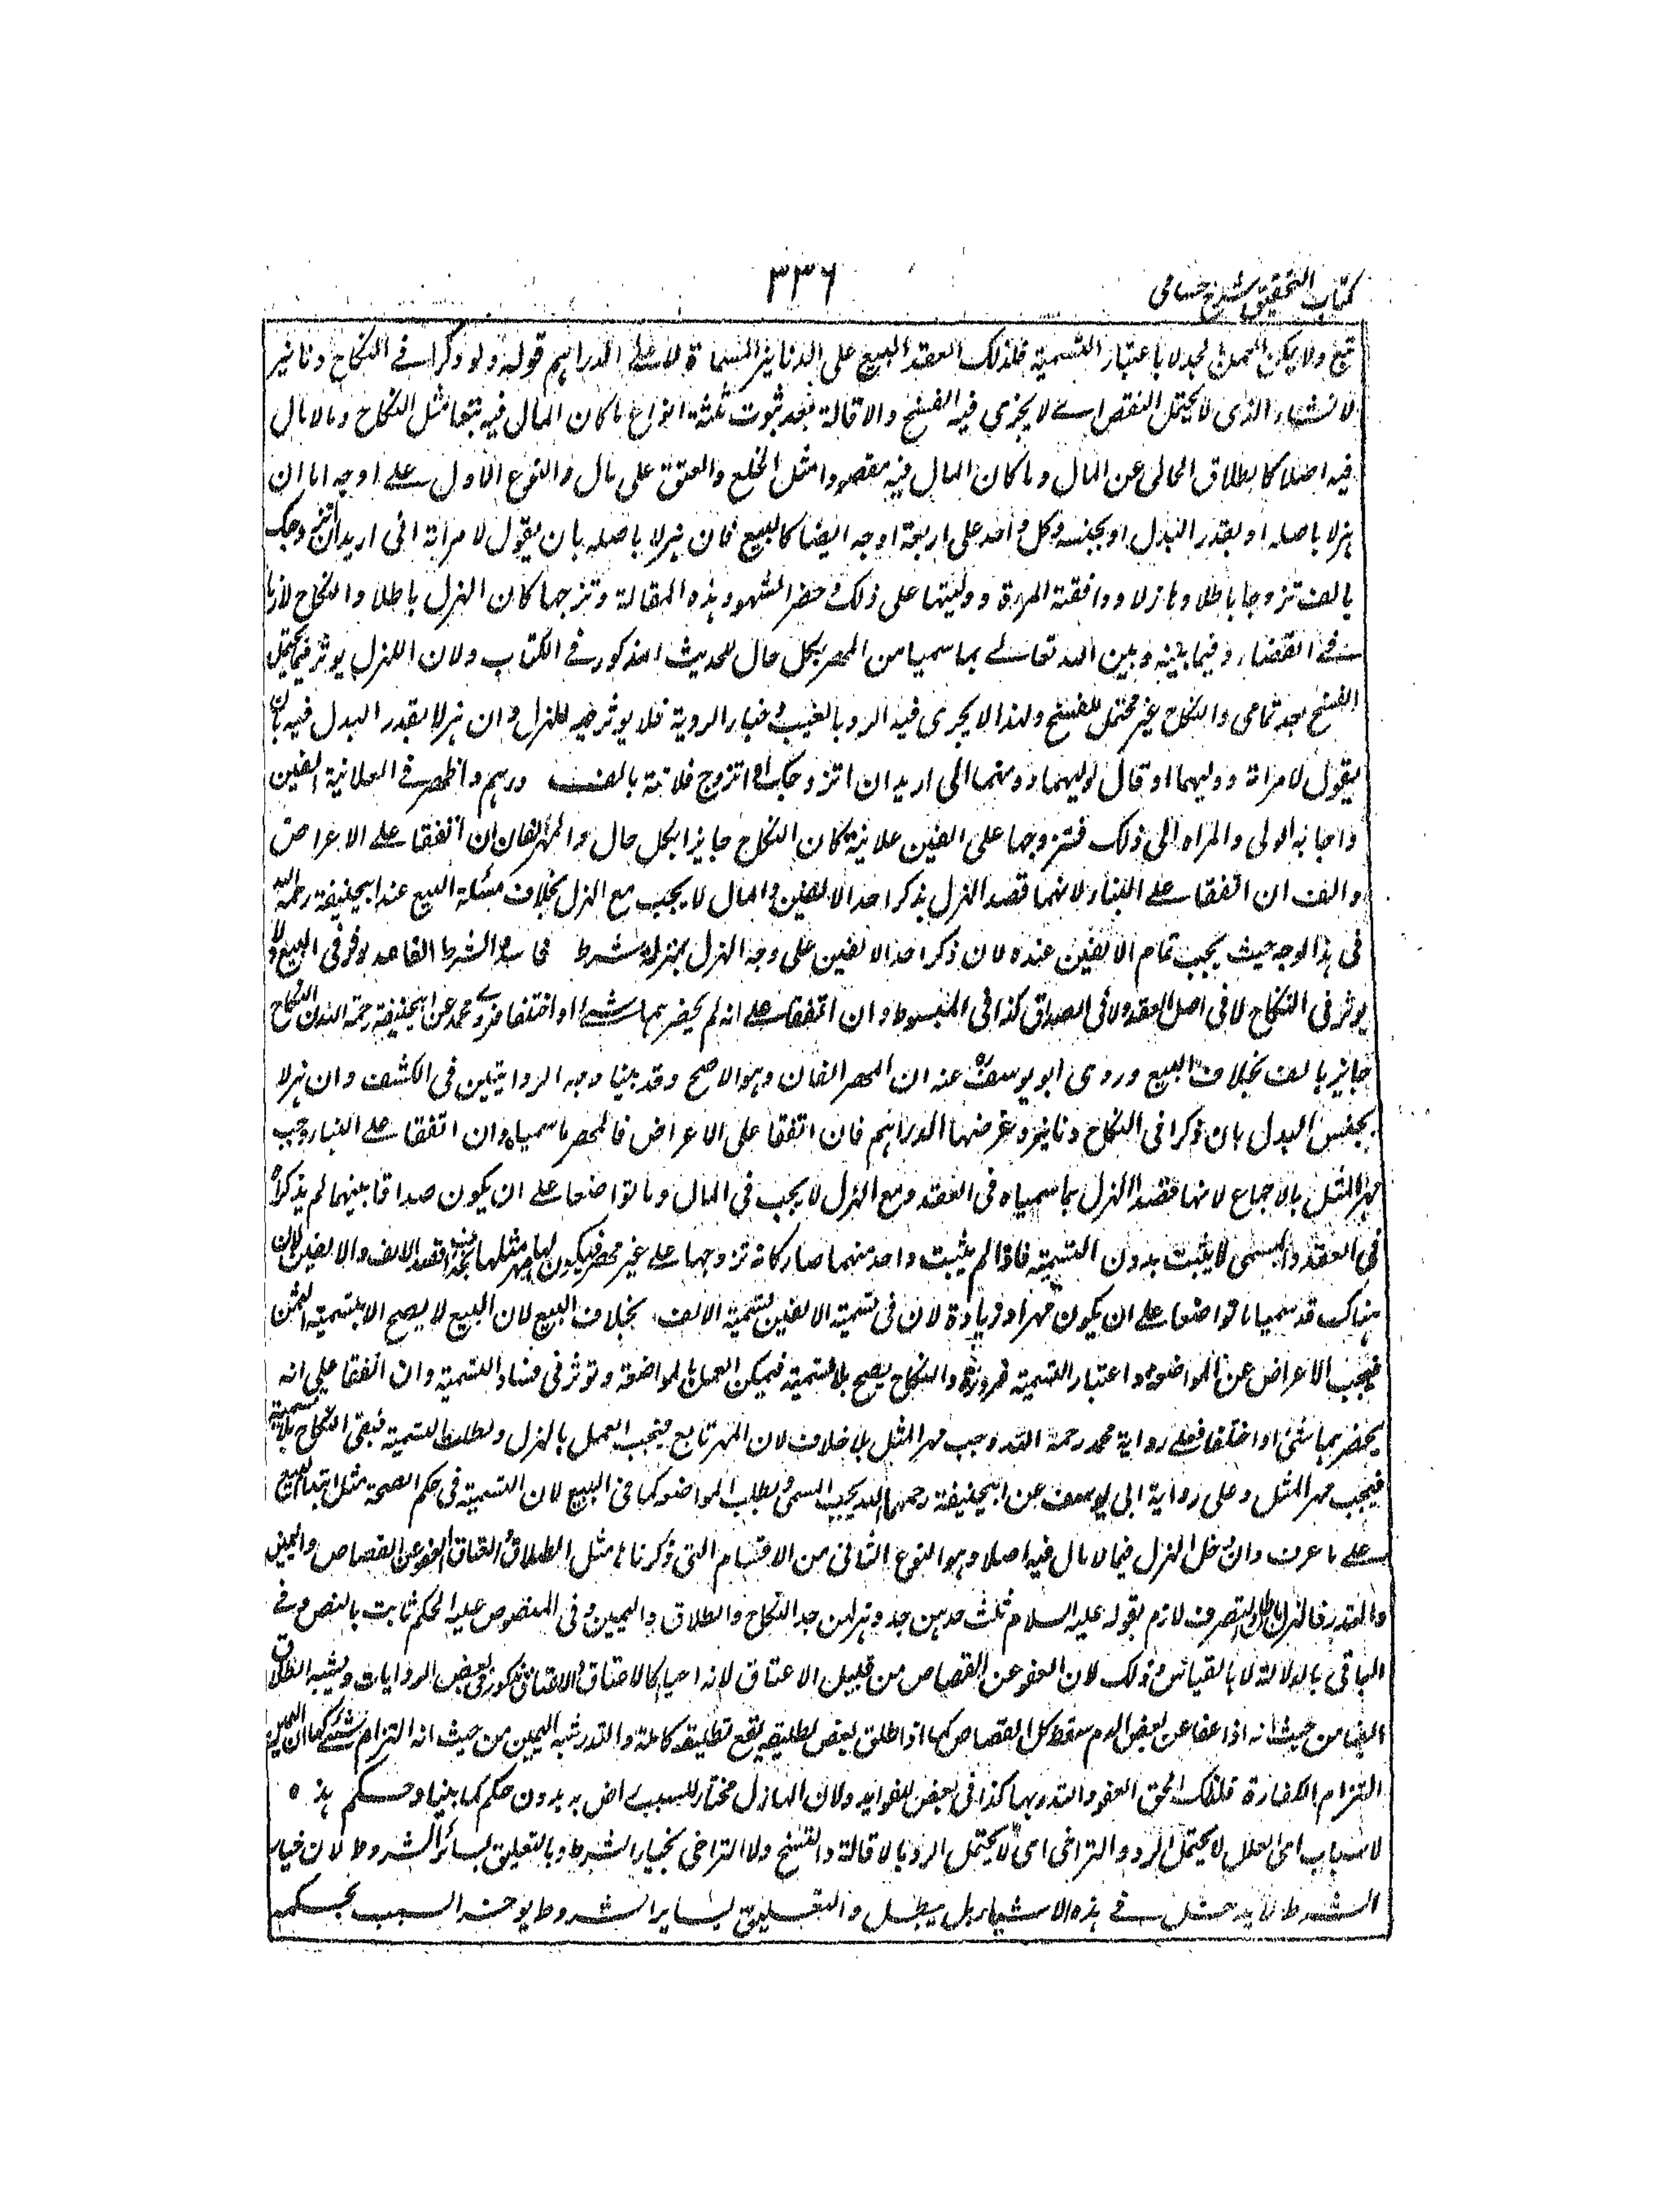 كتاب التحقيق شرح حسامى
٣٣٦
تبع ولا يمكن العمل لجد لا باعتبار التسمية فلذلك انعقد البيع على الدنانير المسماة لا على الدراهم قوله ولو ذكرا فى النكاح دنانير
لا نشاء الذى لا يحتمل النقض اى لا يجزى فيه الفسخ والاقالة بعد ثبوت ثلثة انواع ما كان المال فيه تبعا مثل النكاح وما لا مال
فيه اصلا كالطلاق الخالى عن المال وما كان المال فيه مقصودا مثل الخلع والعتق على مال والنوع الاول على اوجه اما ان
هزلا باصله او بقدر البدل او بجنسه وكل واحد على اربعة اوجه ايضا كالبيع فان هزلا باصله بان يقول لامراته انى اريد ان اتزوجك
بالف تزوجا باطلا وهازلا ووافقته المراة ووليتها على ذلك وحضر الشهود هذه المقالة وتزوجها كان الهزل باطلا والنكاح لازما
فى القضاء وفيما بينه وبين الله تعالى بما سميا من المهر بكل حال للحديث المذكور فى الكتاب ولان الهزل يوثر فيما يحتمل
الفسخ بعد تمامه والنكاح غير محتمل للفسخ ولهذا لا يجرى فيه الرد بالعيب وخيار الروية فلا يوثر فيه الهزل وان هزلا بقدر البدل فيه بان
يقول لامراة ووليهما او قال لوليهما دونهما انى اريد ان اتزوجك او اتزوج فلانة بالف درهم واظهر فى العلانية الفين
واجابه الولى والمراه الى ذلك فتزوجها على الفين علانية كان النكاح جايزا بكل حال والمهر الفان ان اتفقا على الاعراض
والف ان اتفقا على البناء لانهما قصدا الهزل بذكر احد الالفين والمال لا يجب مع الهزل بخلاف مسئلة البيع عند ابيحنيفة رحمه الله
فى هذا الوجه حيث يجب تمام الالفين عنده لان ذكر احد الالفين على وجه الهزل بمنزلة شرط فاسد والشرط الفاسد يوثر فى البيع ولا
يوثر فى النكاح لا فى اصل العقد ولا فى الصداق كذا فى المبسوط وان اتفقا على انه لم يحضرهما شئ او اختلفا فروى محمد عن ابيحنيفة رحمة الله ان النكاح
جايز بالف بخلاف البيع وروى ابو يوسف عنه ان المهر الفان وهو الاصح وقد بينا وجه الروايتين فى الكشف وان هزلا
بجنس البدل بان ذكرا فى النكاح دنانير وغرضهما الدراهم فان اتفقا على الاعراض فالمهر ما سمياه وان اتفقا على البناء وجب
مهر المثل بالاجماع لانهما قصدا الهزل بما سمياه فى العقد ومع الهزل لا يجب فى المال وما تواضعا على ان يكون صداقا بينهما لم يذكراه
فى العقد والمسمى لا يثبت بدون التسمية فاذا لم يثبت واحد منهما صار كانه تزوجها على غير مهر فيكون لها مهر مثلها بخلاف الالف والالفين لان
هناك قد سميا ما تواضعا على ان يكون مهرا وزيادة لان فى تسمية الالفين تسمية الالف بخلاف البيع لان البيع لا يصح الا بتسمية الثمن
فيجب الاعراض عن المواضعه واعتبار التسمية ضرورة والنكاح يصح بلا تسمية فيمكن العمل بالمواضعة وتوثر فى فساد التسمية وان اتفقا على انه
يحضرهما شئ او اختلفا فعلى رواية محمد رحمة الله وجب مهر المثل بلا خلاف لان المهر تابع فيجب العمل بالهزل وبطلت التسمية فبقى النكاح بلا تسمية
فيجب مهر المثل وعلى رواية ابى يوسف عن ابيحنيفة رحمهما الله يجب المسمى وبطلت المواضعه كما فى البيع لان التسمية فى حكم الصحة مثل ابتداء البيع
على ما عرف وان دخل الهزل فيما لا مال فيه اصلا وهو النوع الثانى من الاقسام التى ذكرناها مثل الطلاق والعتاق والعفو عن القصاص واليمين
والنذر فالهزل باطل والتصرف لازم بقوله عليه السلام ثلث جدهن جد وهزلهن جد النكاح والطلاق واليمين وفى المنصوص عليه الحكم ثابت بالنص وفى
الباقى بالدلالة لا بالقياس وذلك لان العفو عن القصاص من قبيل الاعتاق لانه احياء كالاعتاق والاعتاق مذكور فى بعض الروايات ويشبه الطلاق
ايضا من حيث انه اذا عفا عن بعض الدم سقط كل القصاص كما اذا طلق بعض تطليقة يقع تطليقة كاملة والنذر شبه اليمين من حيث انه التزام شئ كما ان اليمين
التزام الكفارة فلذلك الحق العفو والنذر بها كذا فى بعض الفوايد ولان الهازل مختار للسبب راض به بدون حكم كما بينا وحكم هذه
لاسباب اى العلل لا يحتمل الرد والتراخى اى لا يحتمل الرد بالاقالة والفسخ ولا التراخى بخيار الشرط وبالتعليق بسائر الشروط لان خيار
الشرط لا يدخل فى هذه الاشياء بل يبطل والتعليق بساير الشروط يوخر السبب بحكمه